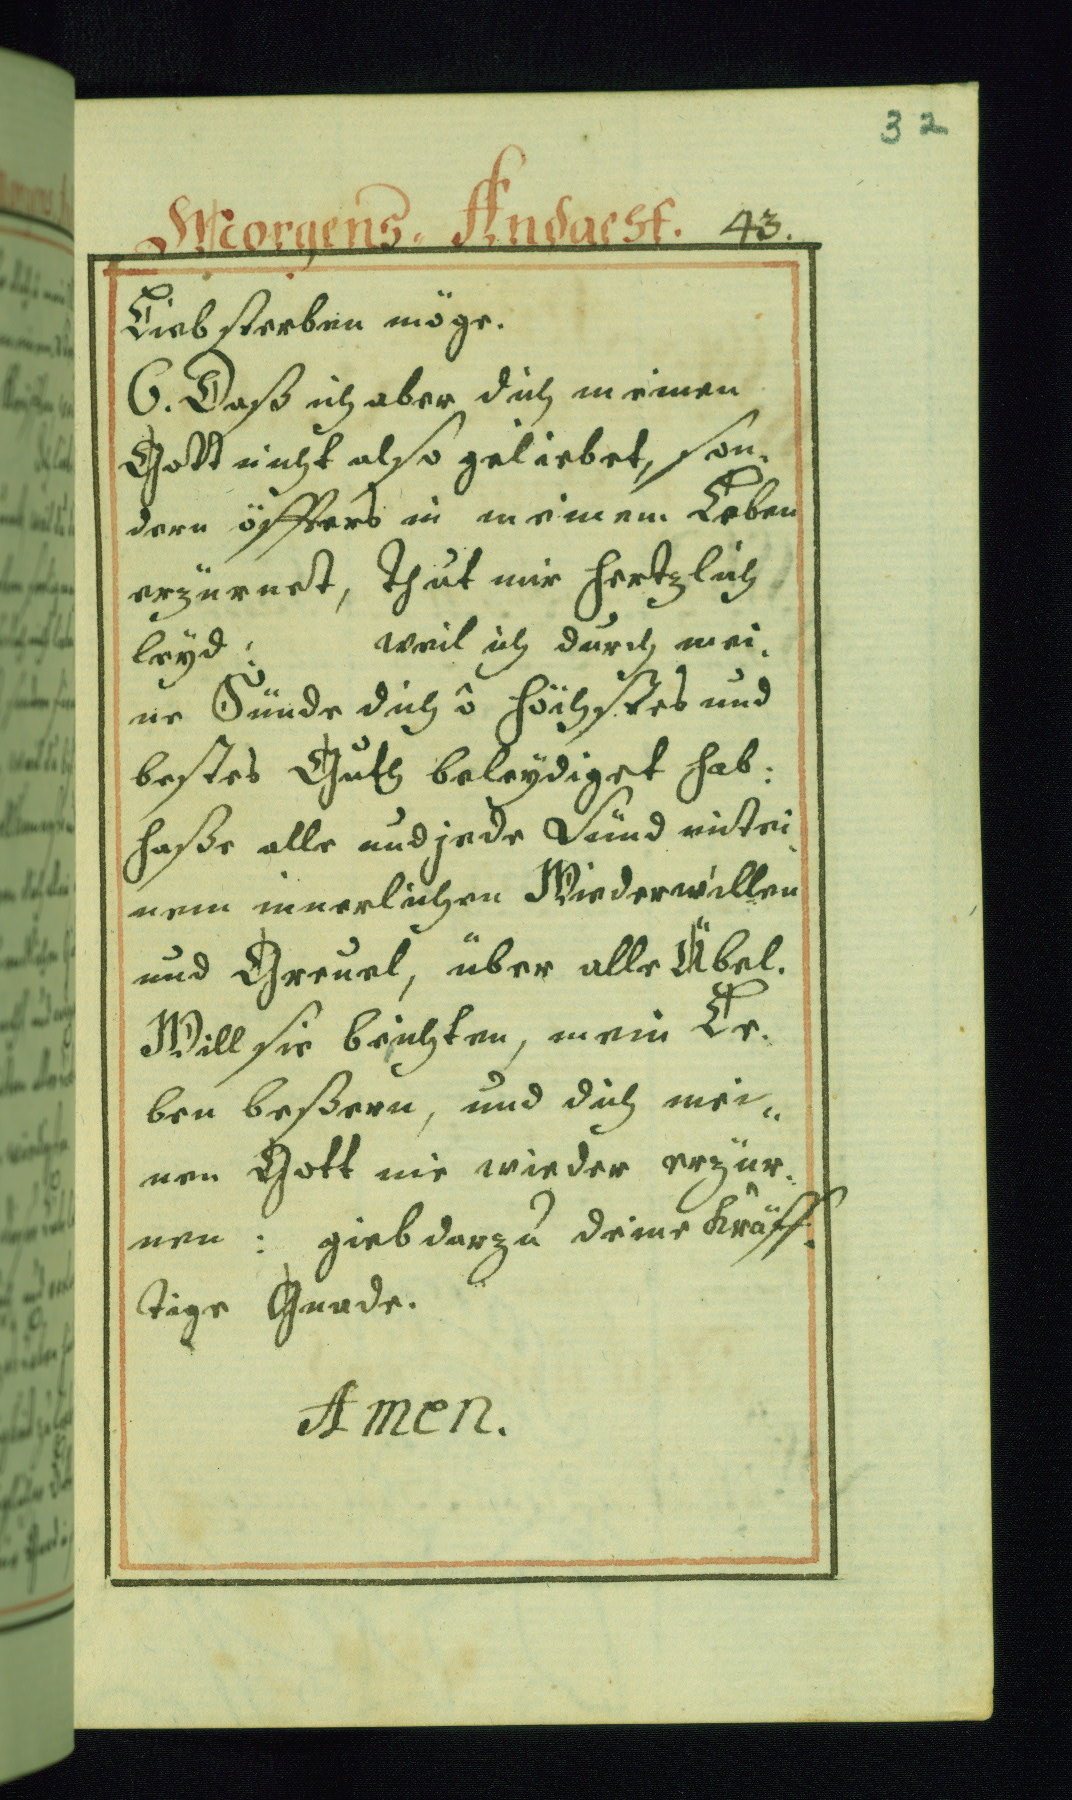 32
Morgens. Andacht. 43.
Lieb sterben möge.
6. Daß ich aber dich meinen
Gott nicht also geliebet, son-
dern öffters in meinem Leben
erzürnet, thut mir hertzlich
leyd: weil ich durch mei-
ne Sünde dich ô höchstes und
bestes Guth beleydiget hab:
haße alle und jede Sünd mit ei-
nem innerlichen Wiederwillen
und Greuel, über alle Übel.
Will sie beichten, mein Le-
ben beßern, und dich mei-
nen Gott nie wieder erzür-
nen: gieb darzu deine kräff-
tige Gnade.
Amen.